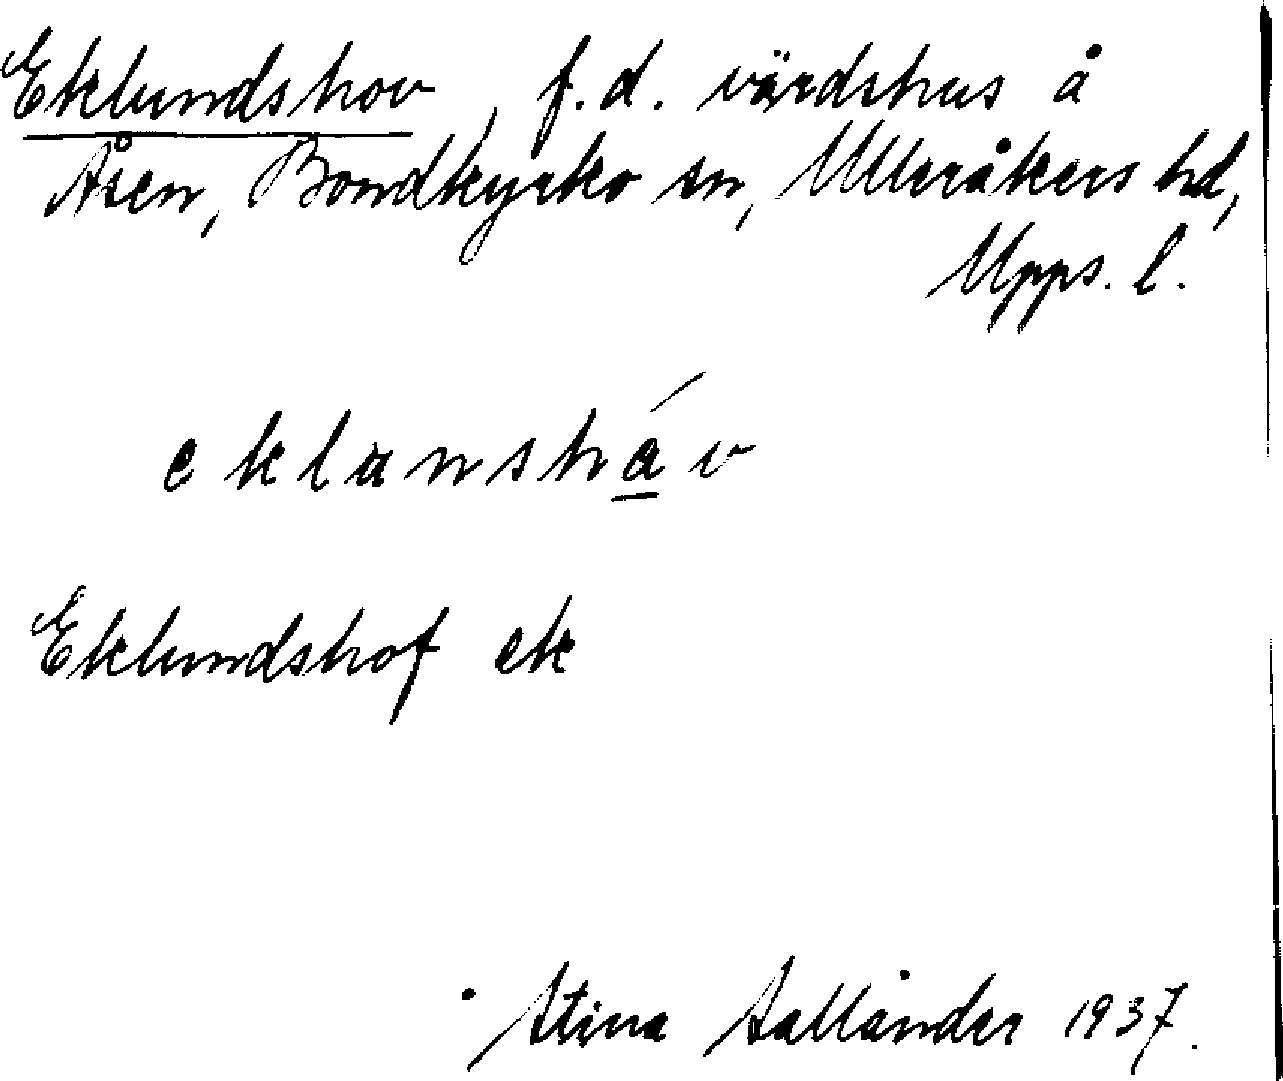 Eklundshov, f.d. värdshus å
Åsen, Bondkyrko sn, Ulleråkers hd,
Upps. l.
eklanshá̱v
Eklundshof ek
Stina Sallander 1937.